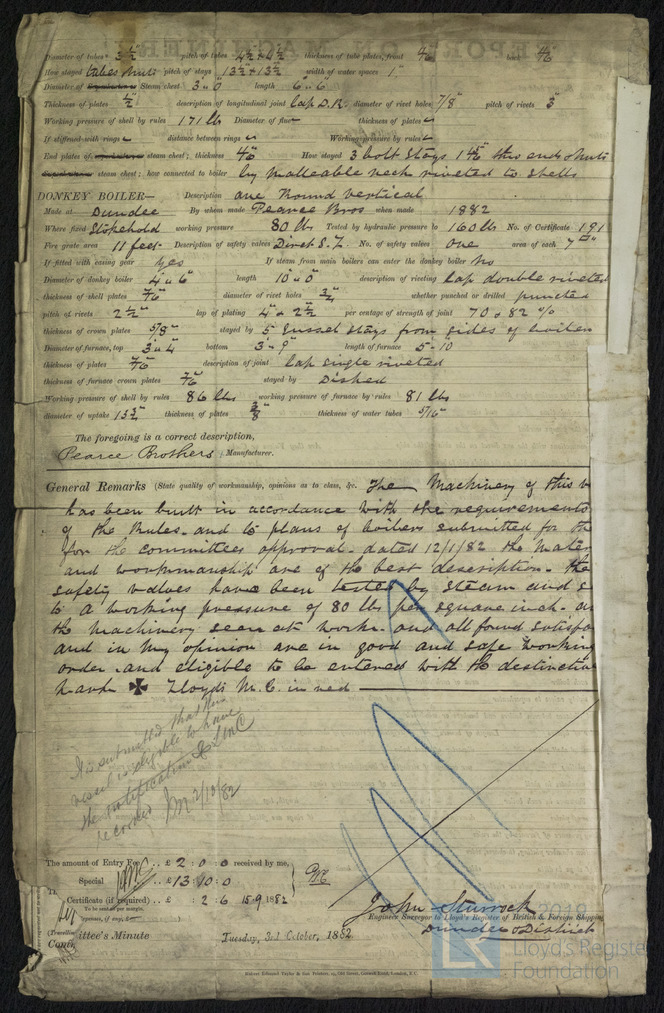 Diameter of tubes 3½" pitch of tubes 4½ + 4½ thickness of tube plates, front back
How stayed tubes nuts pitch of stays 13½ + 13½ width of water spaces 1"
Diameter of Steam chest 3' 0" length 6' 6"
Thickness of plates ½" description of longitudinal joint lap D.R. diameter of rivet holes 7/8" pitch of rivets 3"
Working pressure of shell by rules 171 lb Diameter of flue thickness of plates
If stiffened with rings distance between rings Working pressure by rules
End plates of steam chest; thickness How stayed 3 bolt stays thro ends & nuts
steam chest; how connected to boiler by malleable neck riveted to shells
DONKEY BOILER— Description one Round vertical
Made at Dundee By whom made Pearce Bros when made 1882
Where fixed Stokehold working pressure 80 lb Tested by hydraulic pressure to 160 lb No. of Certificate 191
Fire grate area 11 feet Description of safety valves Direct S. No. of safety valves one area of each 7
If fitted with easing gear yes If steam from main boilers can enter the donkey boiler no
Diameter of donkey boiler 4' 6" length 10' 0" description of riveting lap double riveted
thickness of shell plates 7/16 diameter of rivet holes ¾" whether punched or drilled punched
pitch of rivets 2½" lap of plating 4" + 2½" per centage of strength of joint 70 & 82 %
thickness of crown plates 5/8" stayed by 5 Gusset stays from sides of boiler
Diameter of furnace, top 3' 4" bottom 3' 9" length of furnace 5' 10"
thickness of plates 7/16 description of joint lap single riveted
thickness of furnace crown plates 7/16 stayed by Dished
Working pressure of shell by rules 86 lbs working pressure of furnace by rules 81 lbs
diameter of uptake 13½" thickness of plates 3/8" thickness of water tubes 5/16"
The foregoing is a correct description,
Pearce Brothers Manufacturer.
General Remarks (State quality of workmanship, opinions as to class, &c. The Machinery of this v
has been built in accordance with the requirements
of the Rules. and to plans of boilers submitted for th
for the committees approval. dated 12/1/82 the Mater
and workmanship are of the best description. the
safety valves have been tested by steam and s
to a working pressure of 80 lb per square inch. an
the machinery seen at work. and all found satisfa
and in my opinion are in good and safe working
order. and eligible to be entered with the distinctive
mark ✠ Lloyds M.C. in red
It is submitted that this
vessel is eligible to have
the notification ✠ LMC
recorded 2/10/82
The amount of Entry Fee .. £ 2 : 0 : 0 received by me,
Special .. £ 13 : 10 : 0
Certificate (if required) .. £ : 2 : 6 15.9.1882
To be sent as per margin.
(Travelling expenses, if any, £
John Sturrock
Engineer Surveyor to Lloyd's Register of British & Foreign Shipping
Dundee District
Committee's Minute Tuesday, 3rd October, 1882
2019
Lloyd's Register
Foundation